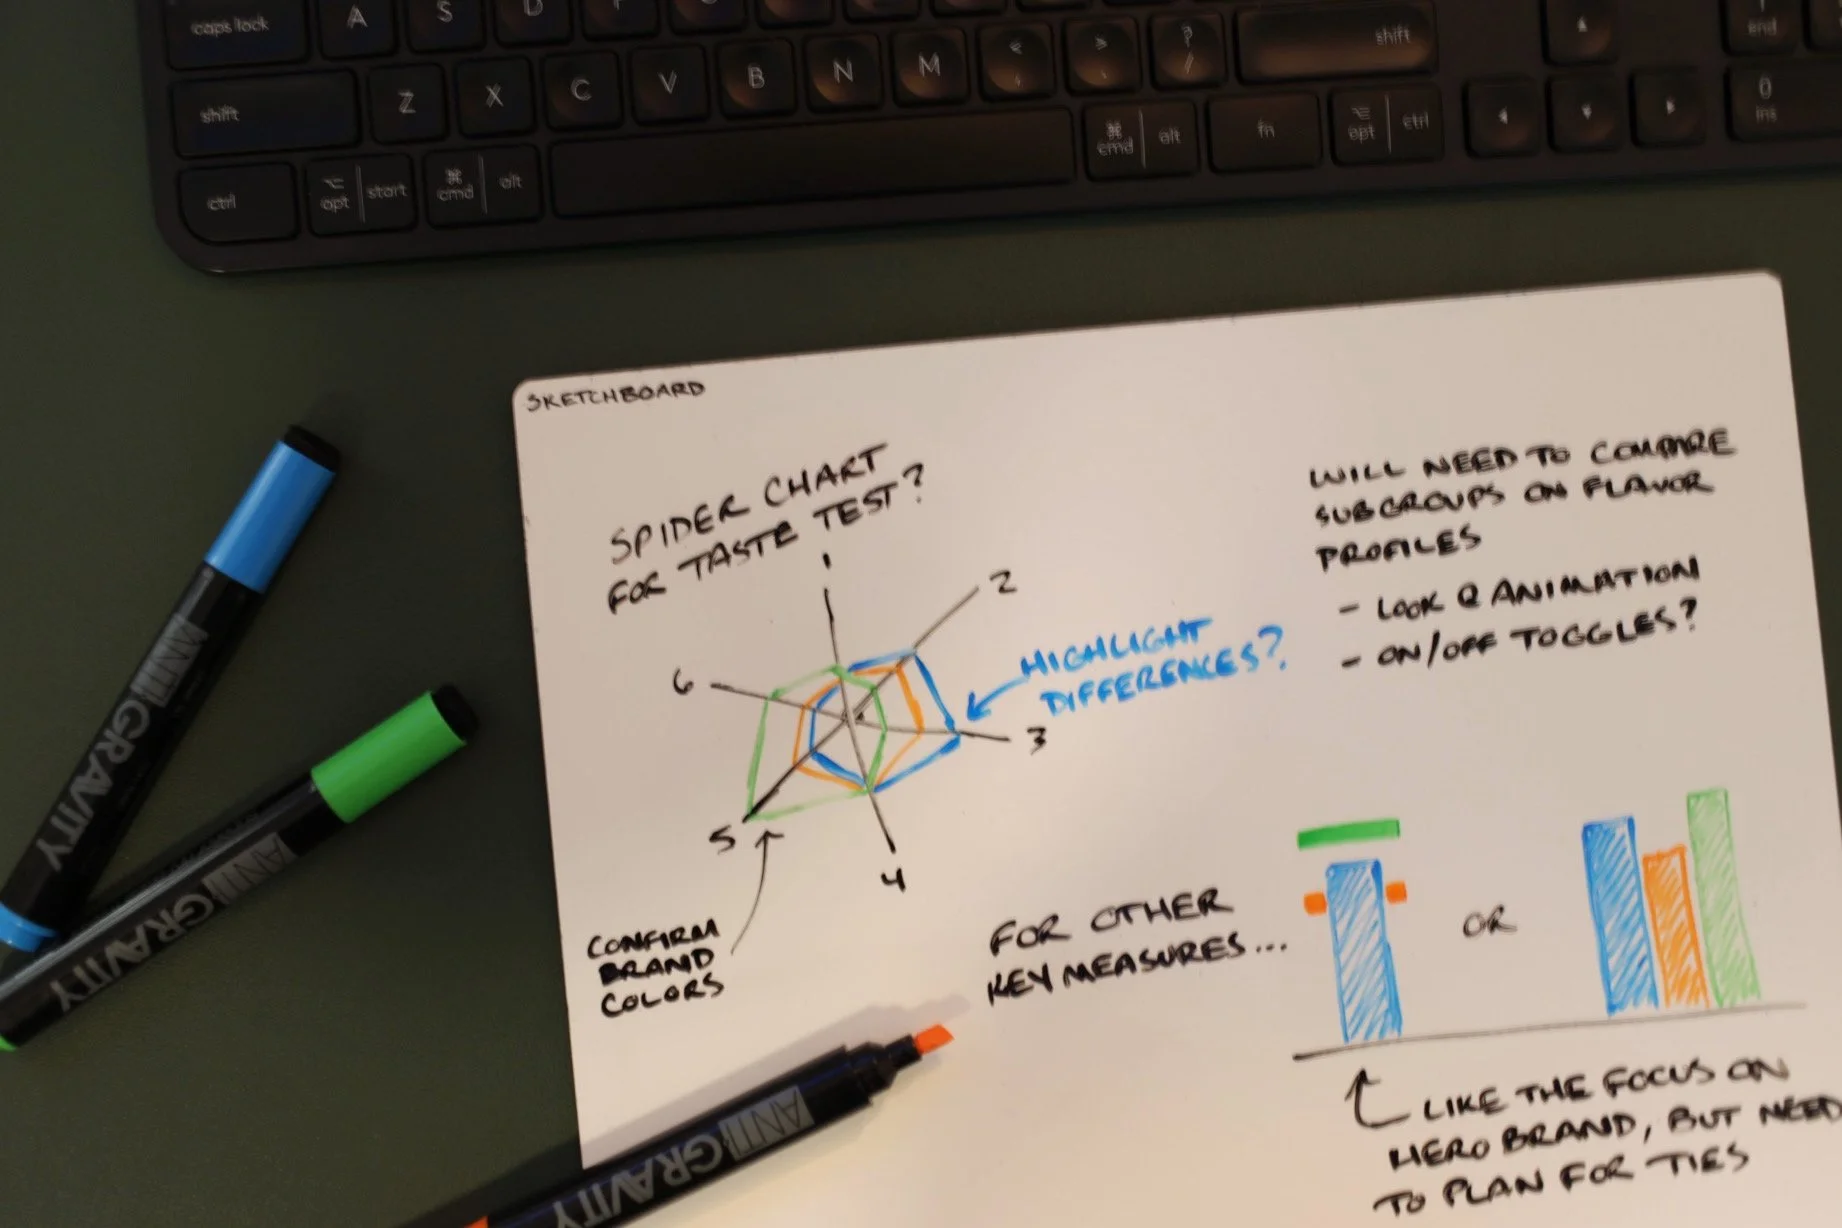 caps lock
A
S
D
F
shift
Z
X
C
V
B
N
M
<
,
>
.
?
/
shift
end
ctrl
opt
start
cmd
alt
cmd
alt
fn
opt
ctrl
0
ins
SKETCHBOARD
SPIDER CHART
FOR TASTE TEST?
1
2
3
4
5
6
HIGHLIGHT
DIFFERENCES?
CONFIRM
BRAND
COLORS
WILL NEED TO COMPARE
SUBGROUPS ON FLAVOR
PROFILES
- LOOK @ ANIMATION
- ON/OFF TOGGLES?
FOR OTHER
KEY MEASURES...
OR
LIKE THE FOCUS ON
HERO BRAND, BUT NEED
TO PLAN FOR TIES
ANTI:GRAVITY
ANTI:GRAVITY
ANTI:GRAVITY